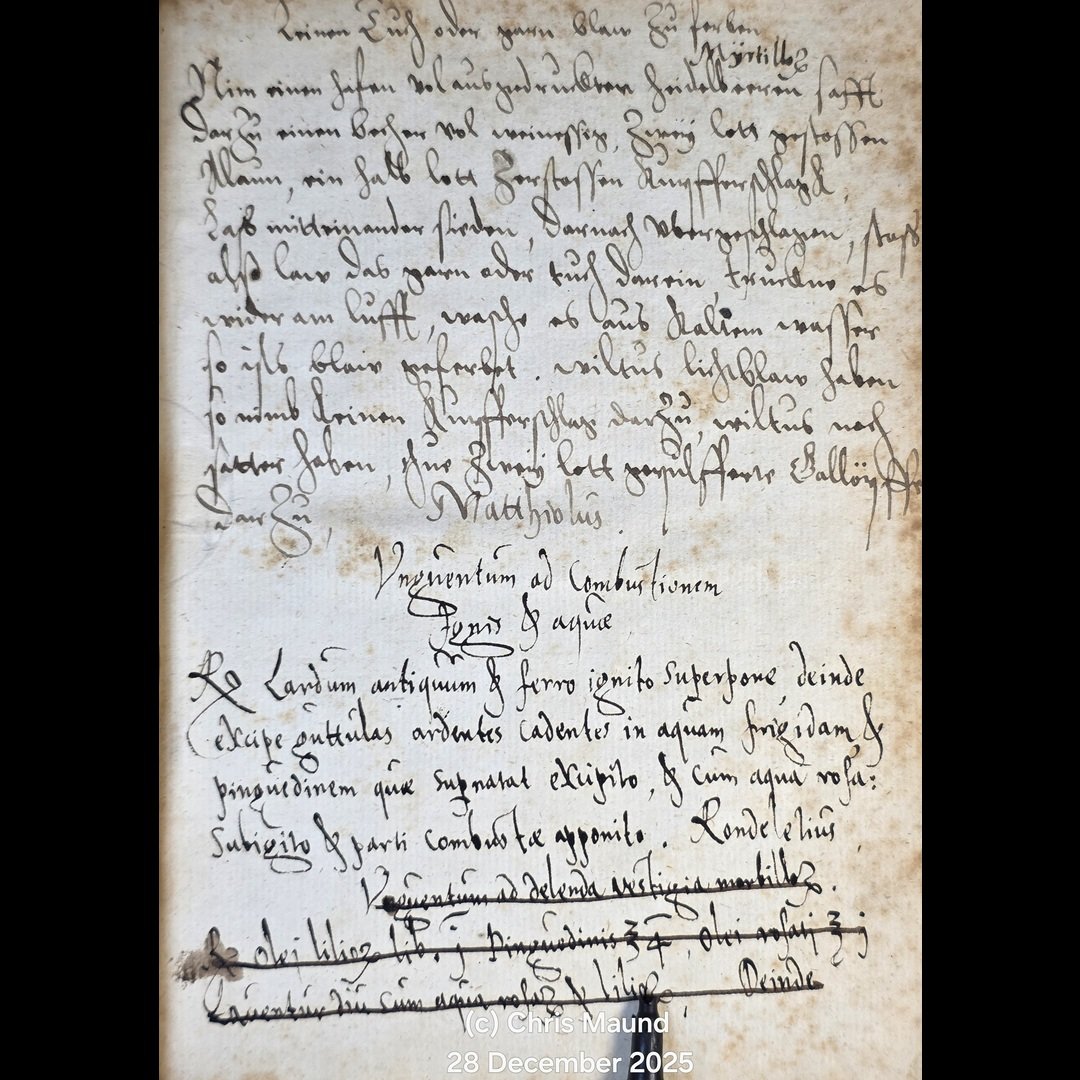 Leinen Tuch oder garn blaw Zu ferben
Myrtilloꝝ
Nim einen hafen vol ausgedruckten heidelbeeren safft
darZu einen becher vol weinessig, Zweÿ lott gestossen
Alaun, ein halb lott Zerstossen Kupfferschlag
Laß mitteinander sieden, darnach vbergeschlagen, stoß
also law das garn oder tuch darein, truckne es
wider am lufft, wasche es aus Kaltem wasser
so ists blaw geferbet. wiltus lichtblaw haben
so nimb Keinen Kupfferschlag darZu, wiltus noch
satter haben, thue Zweÿ lott gepulfferte Gallöpffel
darZu, Matthiolus.
Vnguentum ad Combustionem
Ignis & aquæ
℞ Lardum antiquum & ferro ignito superpone deinde
excipe guttulas ardentes cadentes in aquam frigidam &
pinguedinem quæ supnatat excipito, & cum aqua rosa:
subigito & parti combustæ apponito. Rondeletius
Vnguentum ad delenda vestigia morbilloꝝ.
℞ Olei lilioꝝ lib. j Pinguedinis ℥ 4, Olei rosati ℥ j
Laventur diu cum aqua rosaꝝ & lilioꝝ, Deinde
(c) Chris Maund
28 December 2025